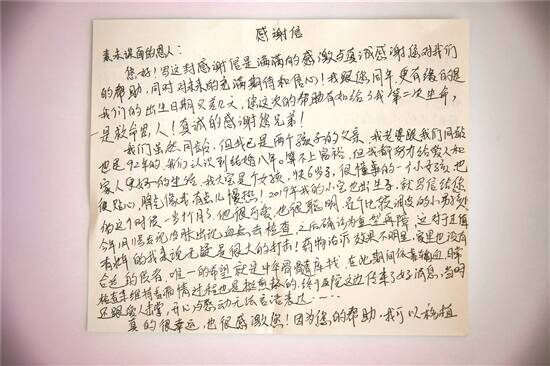 感谢信
素未谋面的恩人：
您好！写这封感谢信是满满的感激与真诚感谢您对我们
的帮助，同时对未来的充满期待和信心！我跟您同年，更有缘的是
我们的出生日期只差，您这次的帮助有如给了我第二次生命，
是救命恩人！真诚的感谢您兄弟！
我们虽然同龄，但我已是两个孩子的父亲，我老婆跟我们同龄
也是92年的我们认识到结婚八年。算不上富裕，但我都努力给爱人和
家人更好的生活，我大宝是个女孩，快6岁了，很懂事的一个小女孩，也
很贴心，脾气像我有点儿慢热！2019年我的小宝也出生了，就
这个时候一岁个月了。他很可爱，也很聪明，是个比较调皮的小男孩
今年间偶发现皮肤出现血点，去检查，之后确诊为重型再障，这对于正值
壮年的我来说无疑是很大的打击！药物治疗效果不明显，家里也没有
合适的供者，唯一的希望就是中华骨髓库找，在此期间依靠输血，
检查来维持着病情过程也是挺煎熬的，终于医院这边传来了好消息，当时
还跟家人拿掌，开心与感动无法言语表达……
真的很幸运，也很感激您！因为您的帮助，我可以移植